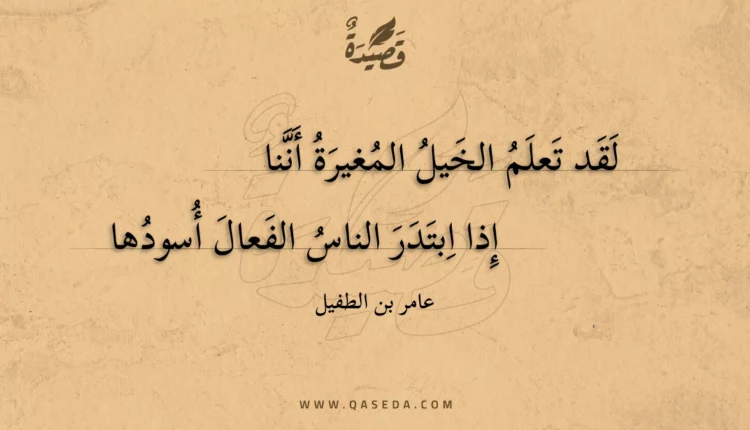 قَصِيْدَةٌ
لَقَد تَعلَمُ الخَيلُ المُغيرَةُ أَنَّنا
إِذا اِبتَدَرَ الناسُ الفَعالَ أُسودُها
عامر بن الطفيل
WWW.QASEDA.COM